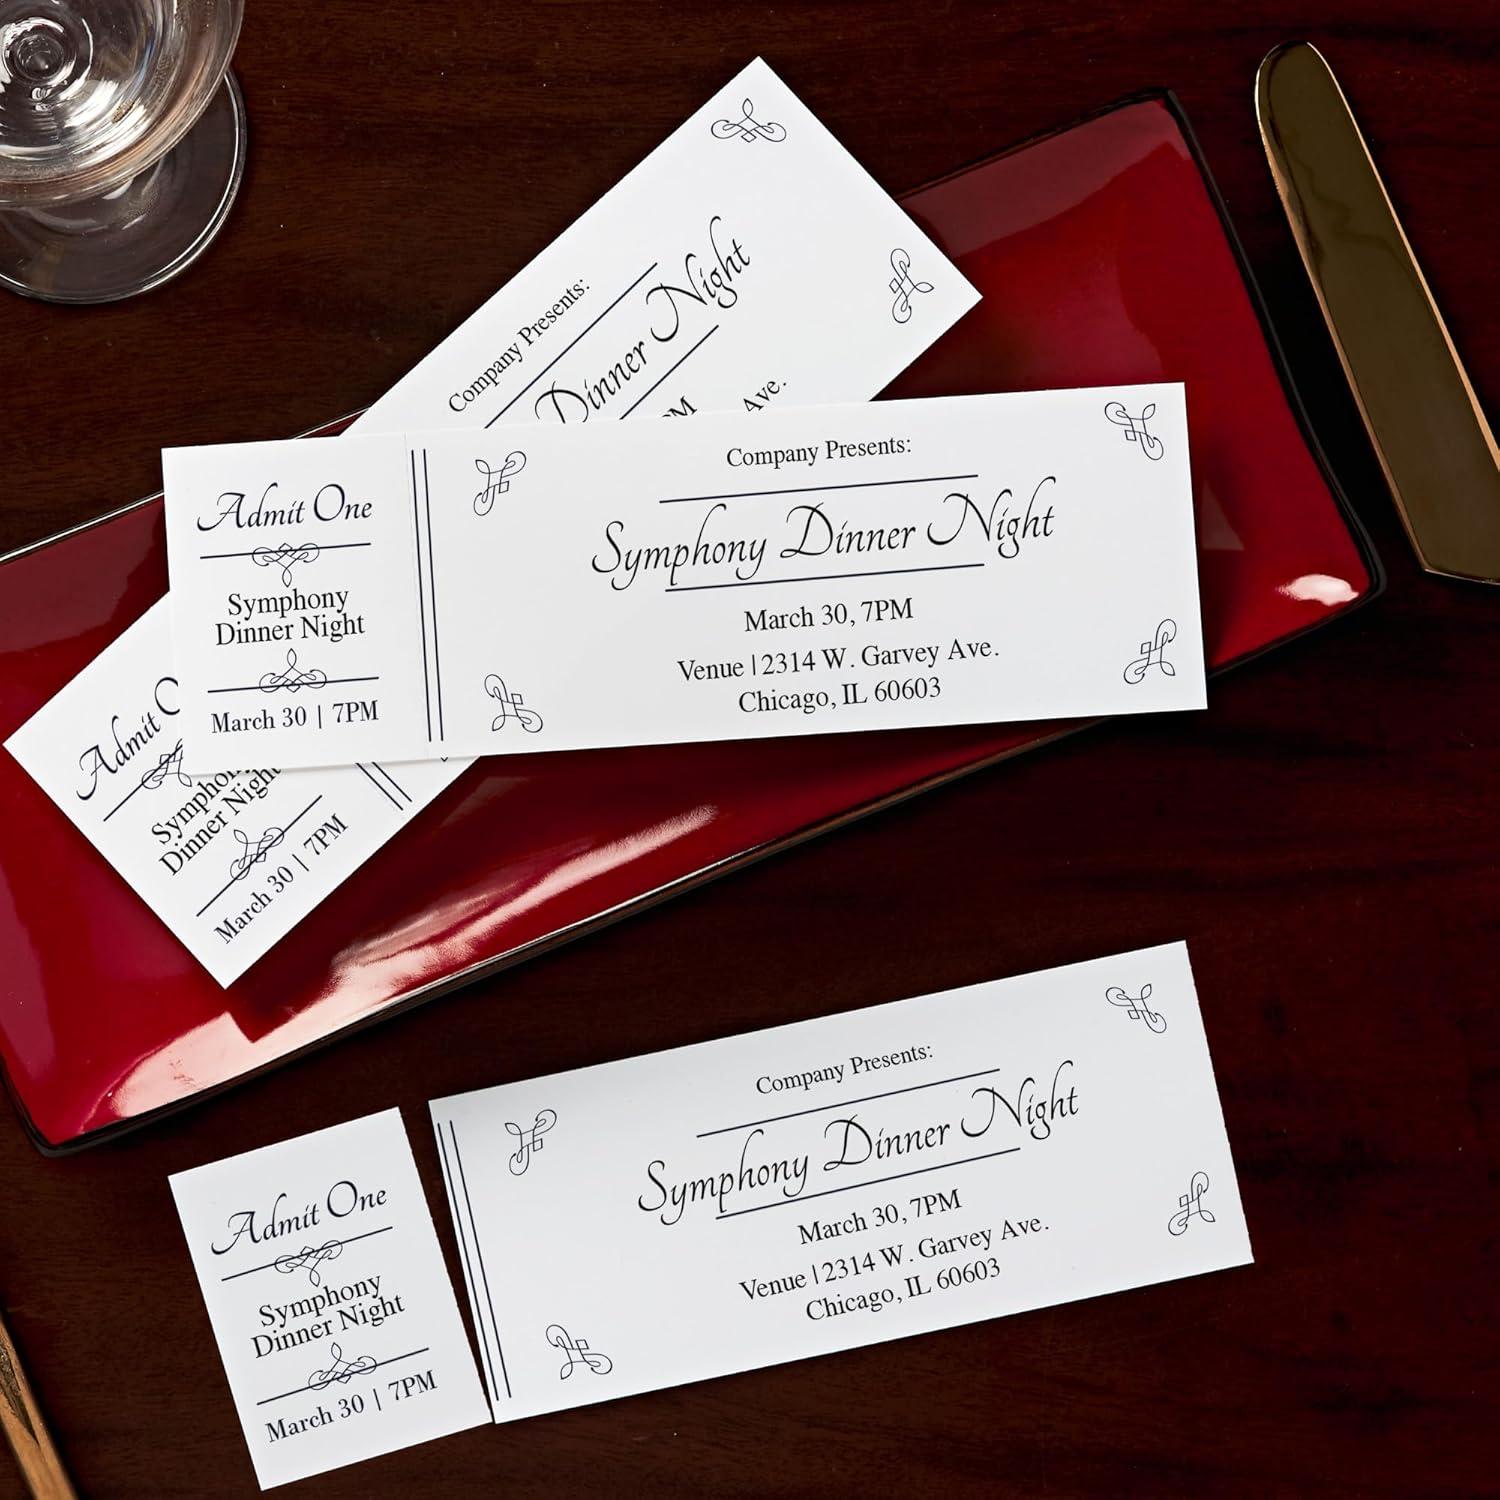 Company Presents:
Dinner Night
PM
Ave.
Admit One
Symphony
Dinner Night
March 30 | 7PM
Company Presents:
Symphony Dinner Night
March 30, 7PM
Venue | 2314 W. Garvey Ave.
Chicago, IL 60603
Admit O
Symphon
Dinner Night
March 30 | 7PM
Admit One
Symphony
Dinner Night
March 30 | 7PM
Company Presents:
Symphony Dinner Night
March 30, 7PM
Venue | 2314 W. Garvey Ave.
Chicago, IL 60603